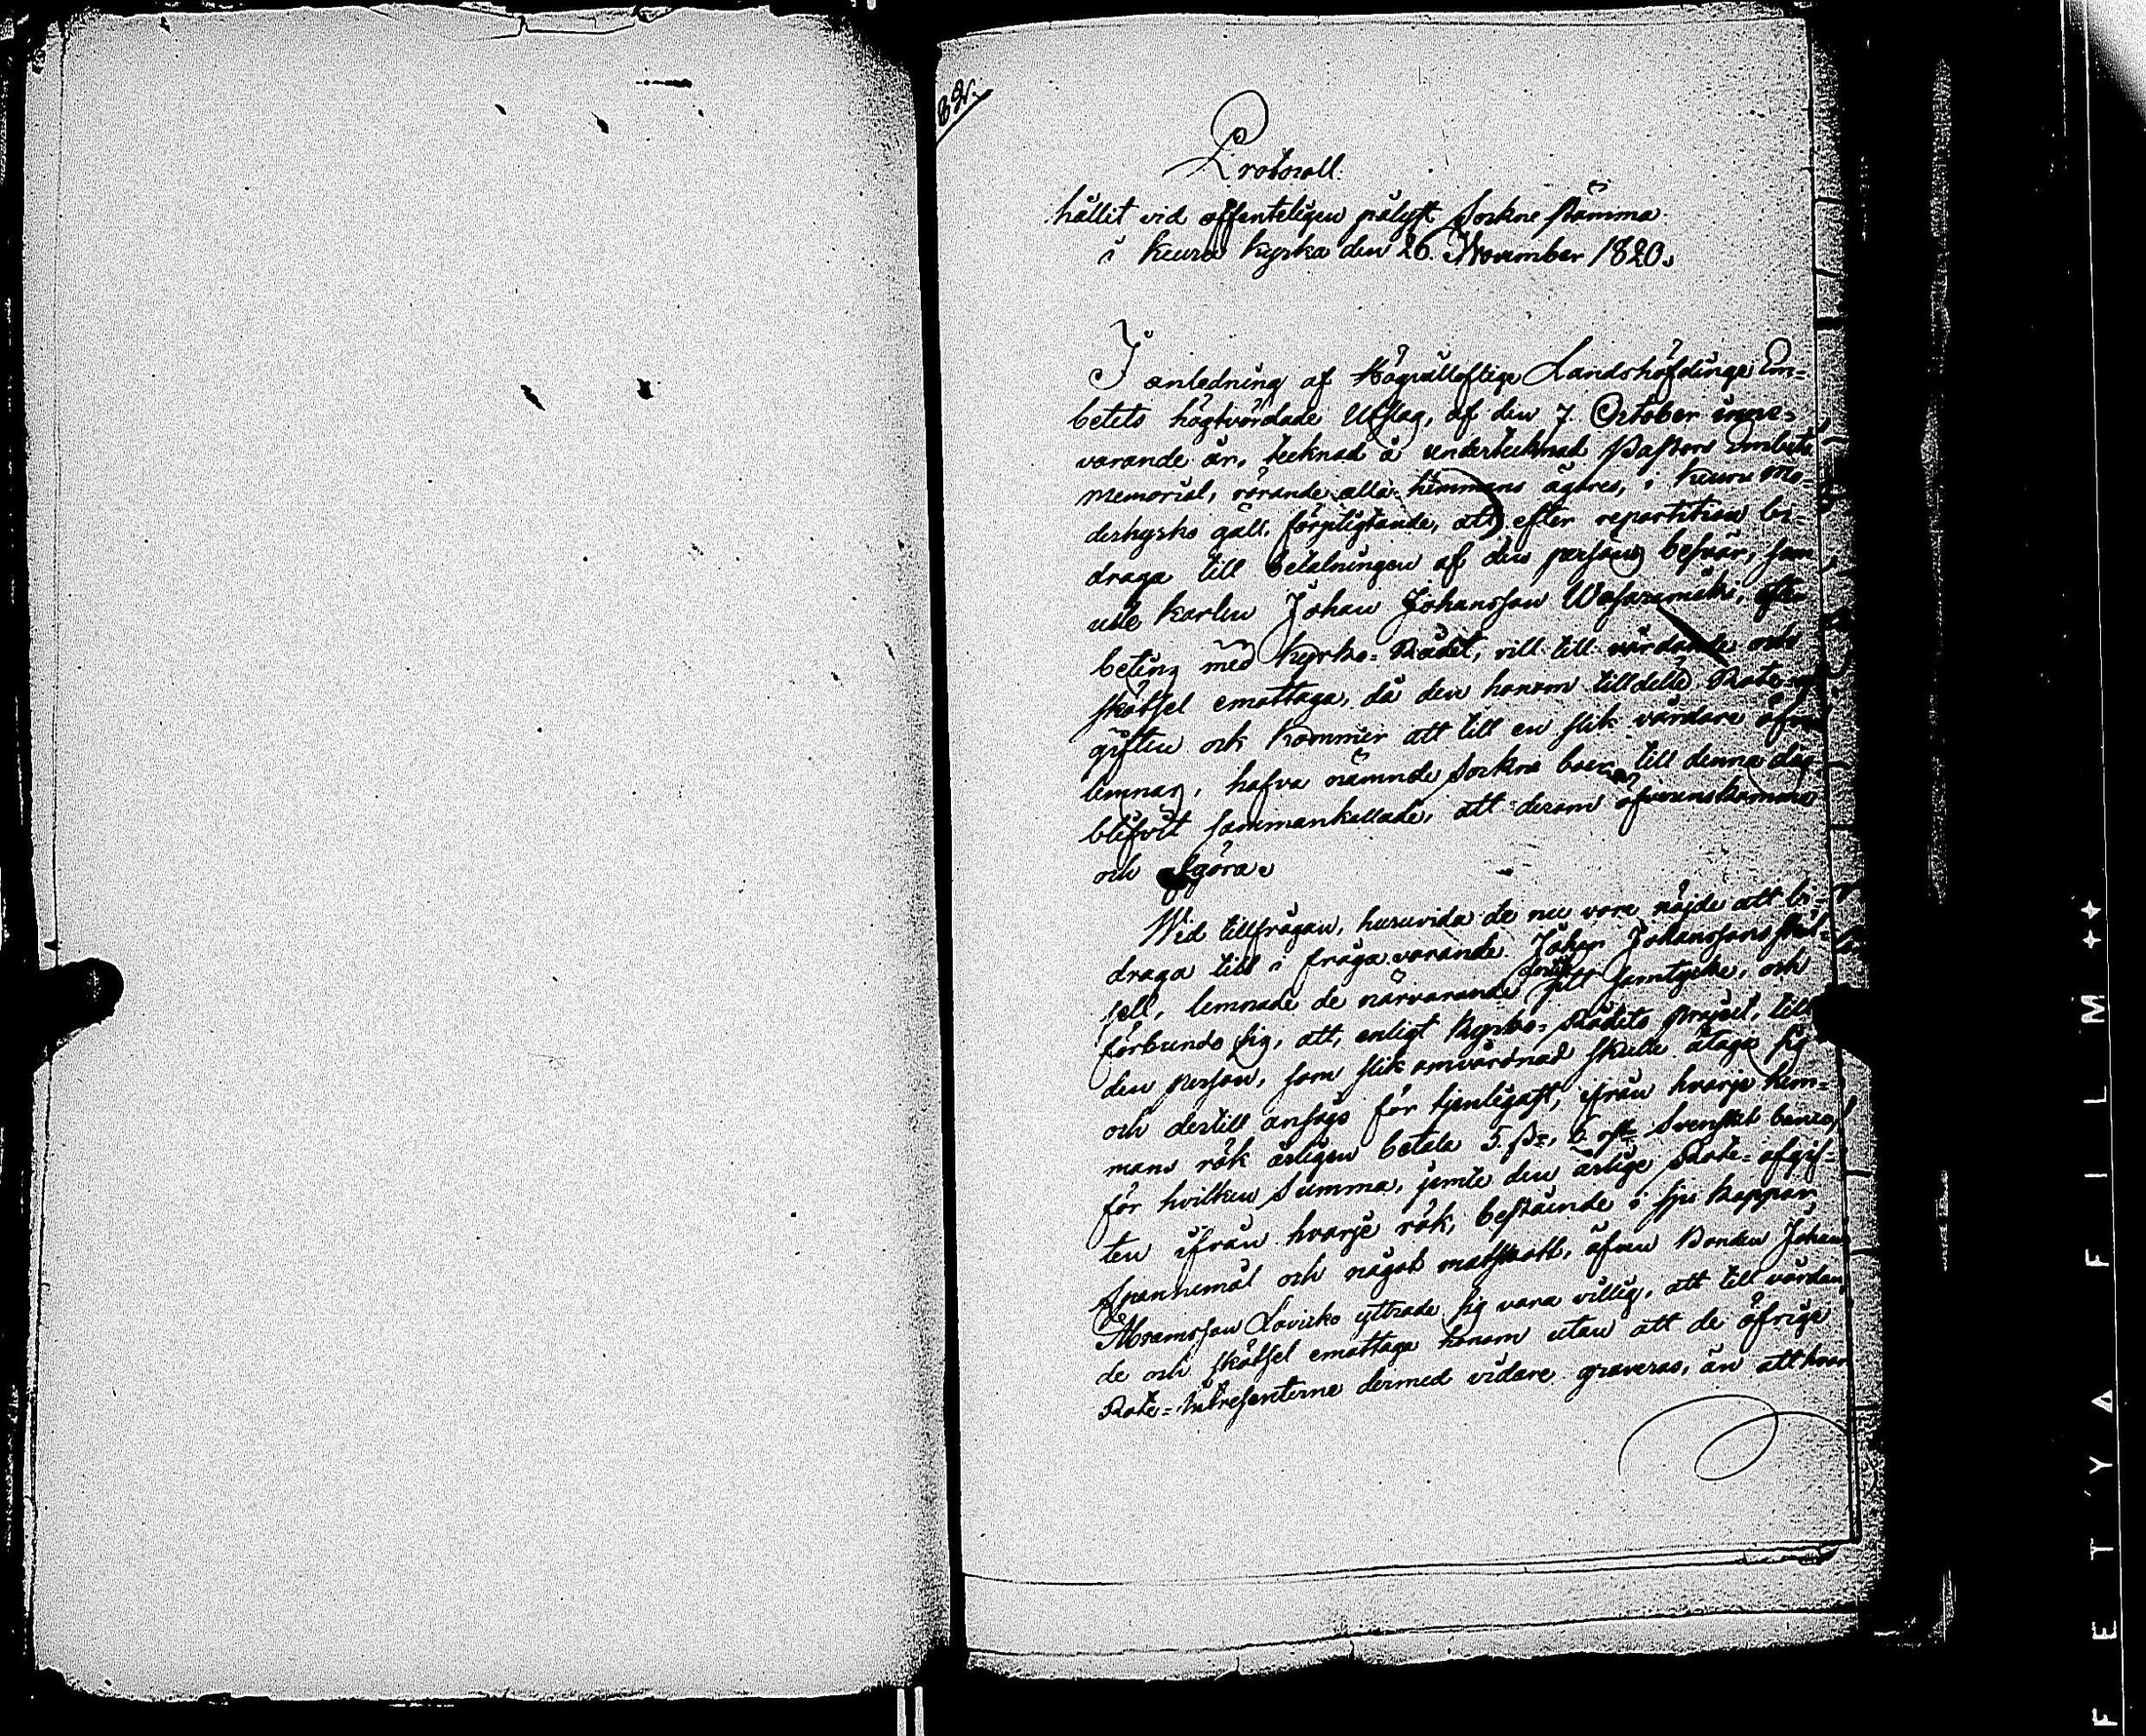 82.
Protocoll
hållit vid offenteligen pålyst Sockne stämma
i Keuru kyrka den 26. November 1820.
I anledning af Högvälloflige Landshöfdinge Em-
betets högtvördade Utslag, af den 7. October inne-
varande år, tecknad å undertecknad Pastors Embets
memorial, rörande alla hemmans ägares, i Keuru Mo-
derkyrko gäll, förpligtande, att efter repartition bi-
draga till betalningen af den persons besvär, som
utle karlen Johan Johansson efter
beting med Kyrko-Rådet, vill till vårdande och
skötsel emottaga, då den honom tilldelte Rote
giften och kommer att till en slik vårdare öfver
lemnas, hafva nämnde Sockne boer till denna dag
blifvit sammankallade, att derom öfverenskomma
och afgöra.
Wid tillfrågan, huruvida de nu vore nöjde att bi-
draga till i frågavarande Johan Johanssons sköt-
sel, lemnade de närvarande sitt samtycke, och
förbundo sig, att, enligt Kyrko-Rådets project, till
den person, som slik omvårdnad skulle åtaga sig
och dertill ansågs för tjenligast, ifrån hvarje hem-
mans rök årligen betala 5. sk. 6. rst. Svenskt banco,
för hvilken Summa, jemte den årlige Rote-afgif-
ten ifrån hvarje rök, bestående i sju kappar
Spannemål och något matskatt, äfven Bonden Johan
Abramsson Loviko yttrade sig vara villig, att till vårdan-
de och skötsel emottaga honom utan att de öfrige
Rote-Intressenterne dermed vidare graveras, än att hvar
FETYA FILM ++